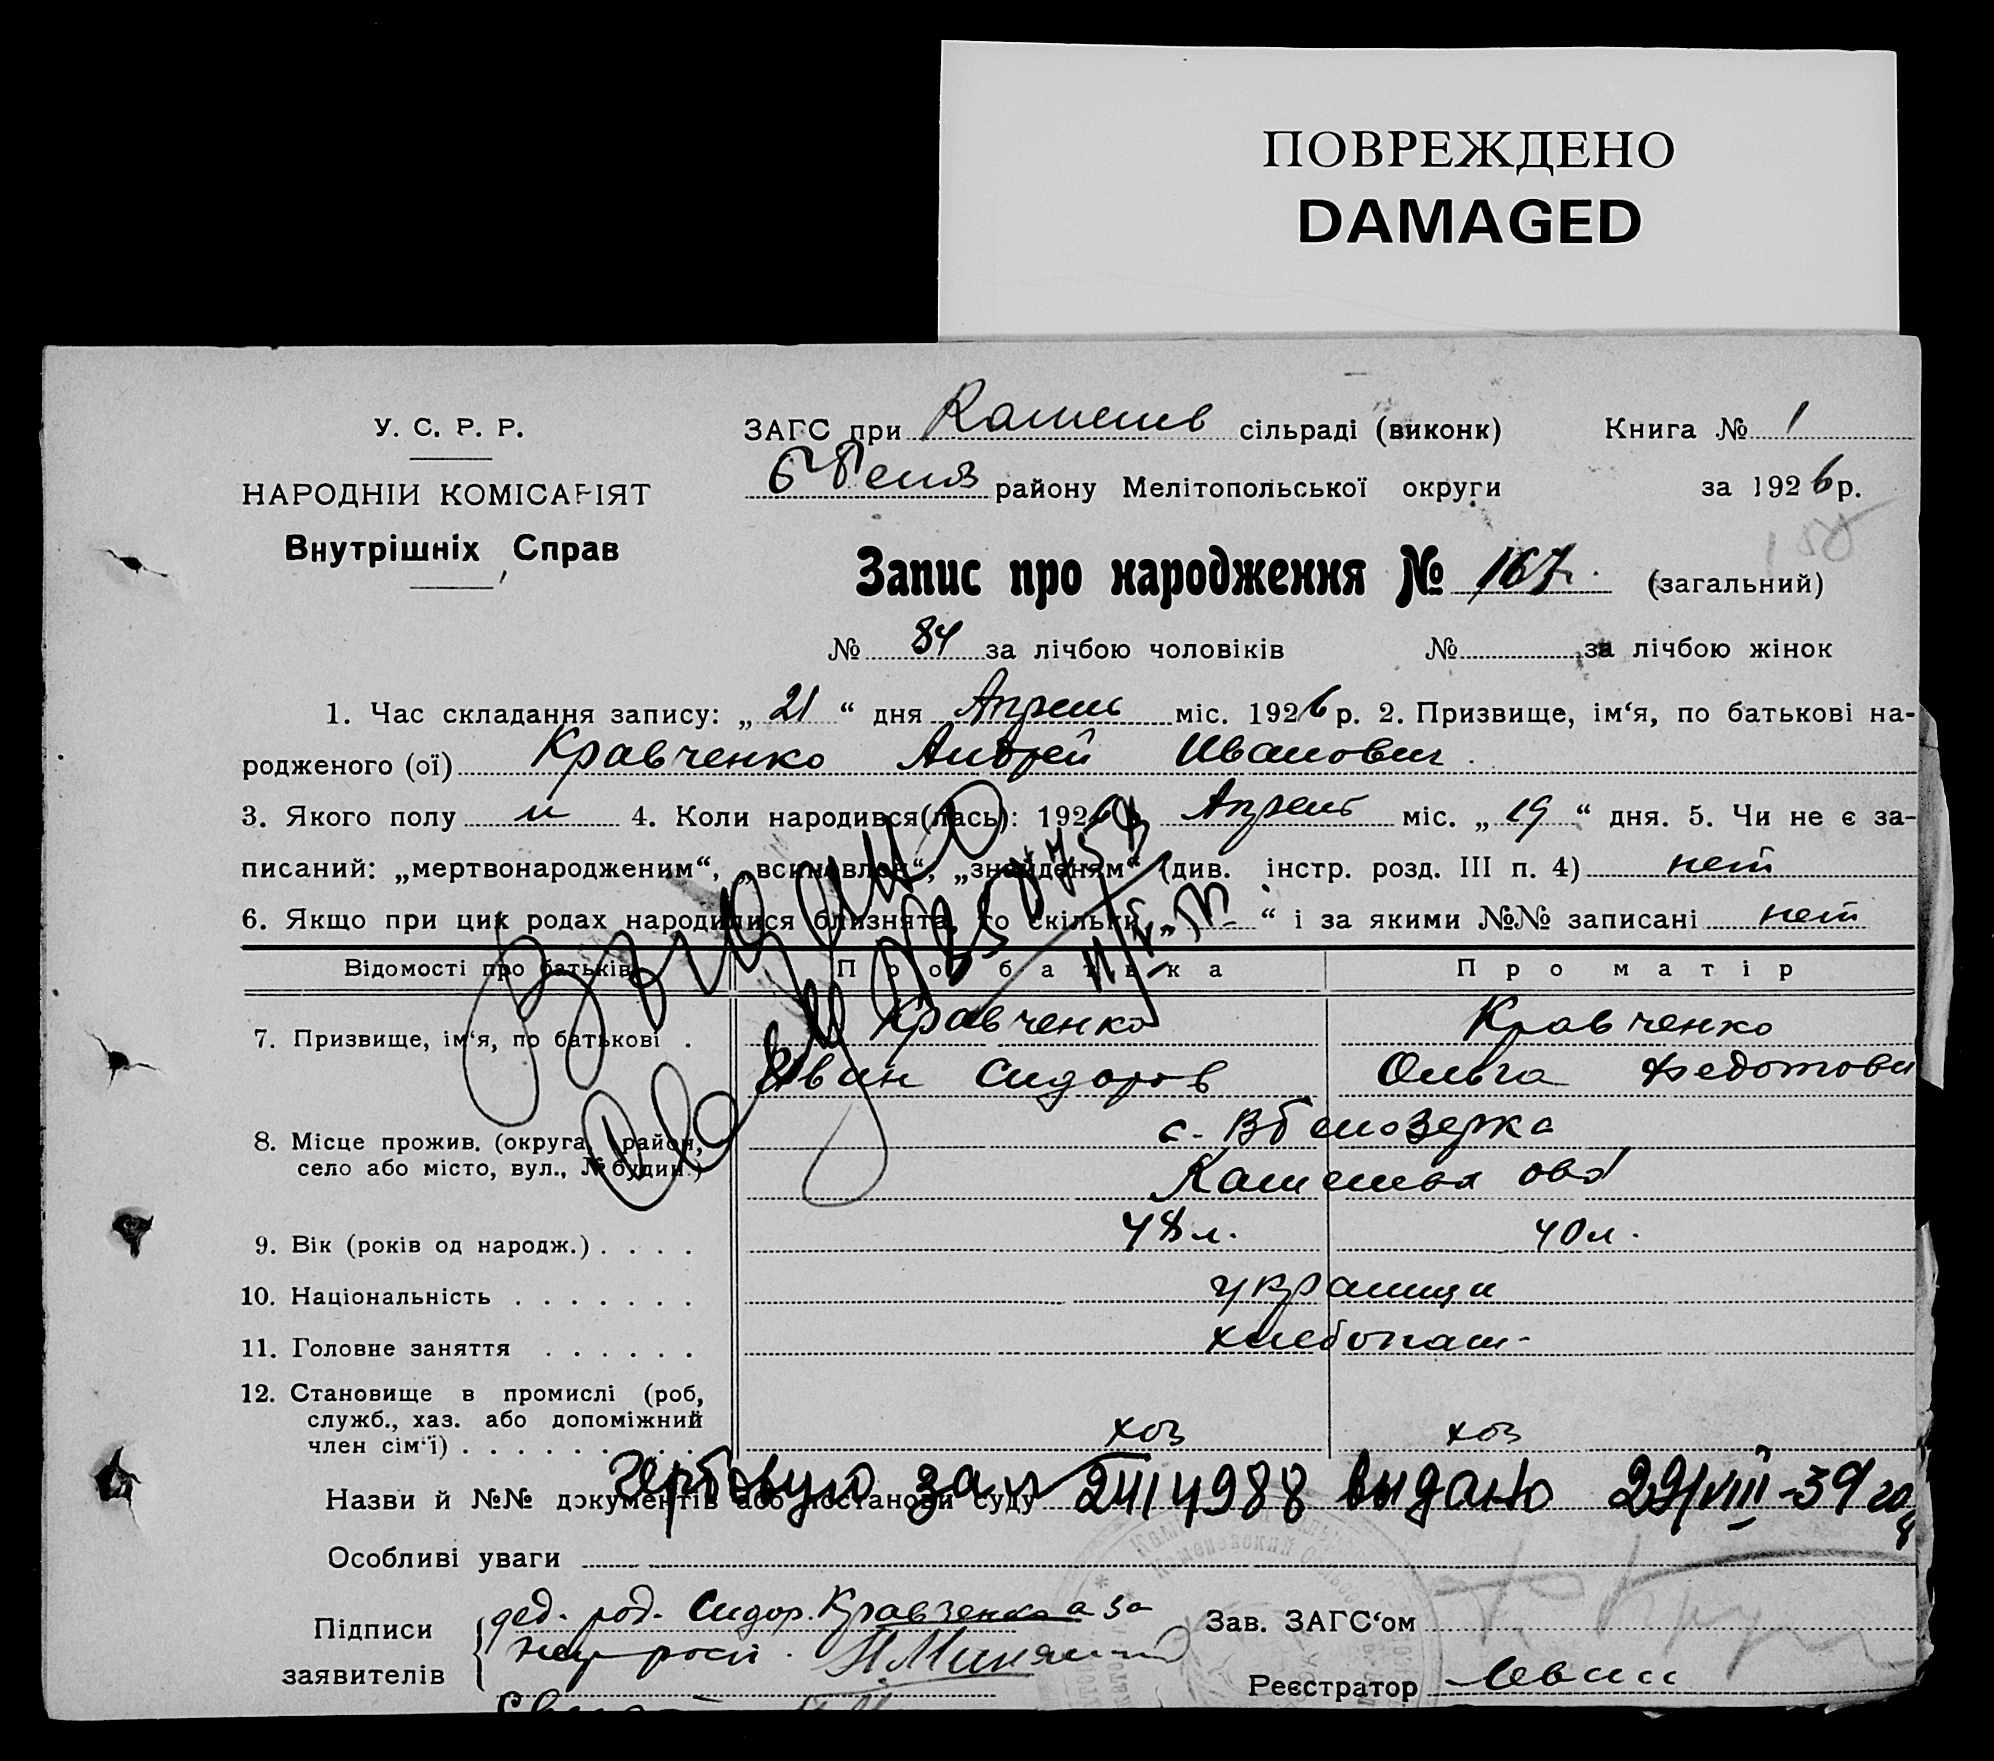 ПОВРЕЖДЕНО
DAMAGED
У. С. Р. Р.
НАРОДНІЙ КОМІСАРІЯТ
Внутрішніх Справ
ЗАГС при Каменсв сільраді (виконк) Книга № 1
району Мелітопольської округи за 1926 р.
Запис про народження № 167. (загальний)
№ 84 за лічбою чоловіків № за лічбою жінок
1. Час складання запису: „ 21 “ дня Апрель міс. 1926 р. 2. Призвище, ім‘я, по батькові на-
родженого (ої) Кравченко Андрей Иванович.
3. Якого полу м 4. Коли народився(лась): 1926 р. Апрель міс. „ 19 “ дня. 5. Чи не є за-
писаний: „мертвонародженим“, „всиновлен“, „знайденям“ (див. інстр. розд. III п. 4) нет
6. Якщо при цих родах народилися близнята, то скільки „ “ і за якими №№ записані нет
Выдано
Відомості про батьків Про батька Про матір
7. Призвище, ім‘я, по батькові . Кравченко Кравченко
Иван Сидоров Ольга Федотовн
8. Місце прожив. (округа, район, с. Вбелозерка
село або місто, вул., № будин.)
9. Вік (років од народж.) . . . . 48 л. 40 л.
10. Національність . . . . . . . украинци
11. Головне заняття . . . . . . хлебопаш-
12. Становище в промислі (роб,
служб., хаз. або допоміжний
член сім‘ї) . . . . . . . . . хоз хоз
Назви й №№ документів або постанови суду
выдано 29/VIII-39 год
Особливі уваги
Підписи
заявителів
Сидор. Кравченко а за
негр
Зав. ЗАГС‘ом
Реєстратор